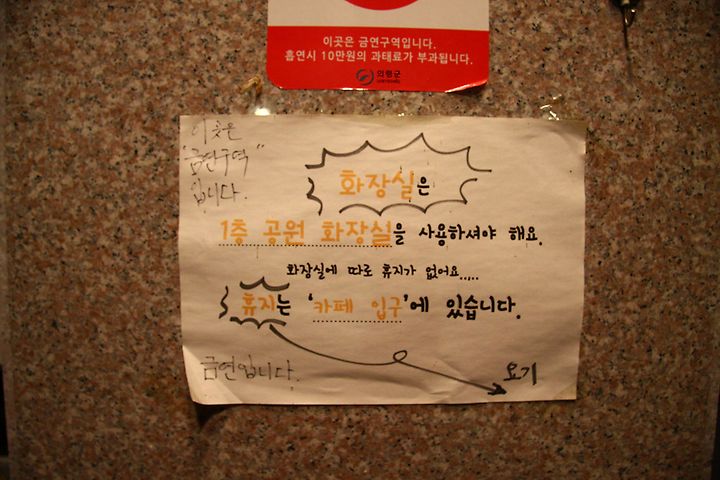 이곳은 금연구역입니다.
흡연시 10만원의 과태료가 부과됩니다.
의령군
이곳은
"금연구역"
입니다.
화장실은
1층 공원 화장실을 사용하셔야 해요.
화장실에 따로 휴지가 없어요.....
휴지는 '카페 입구'에 있습니다.
금연입니다.
요기